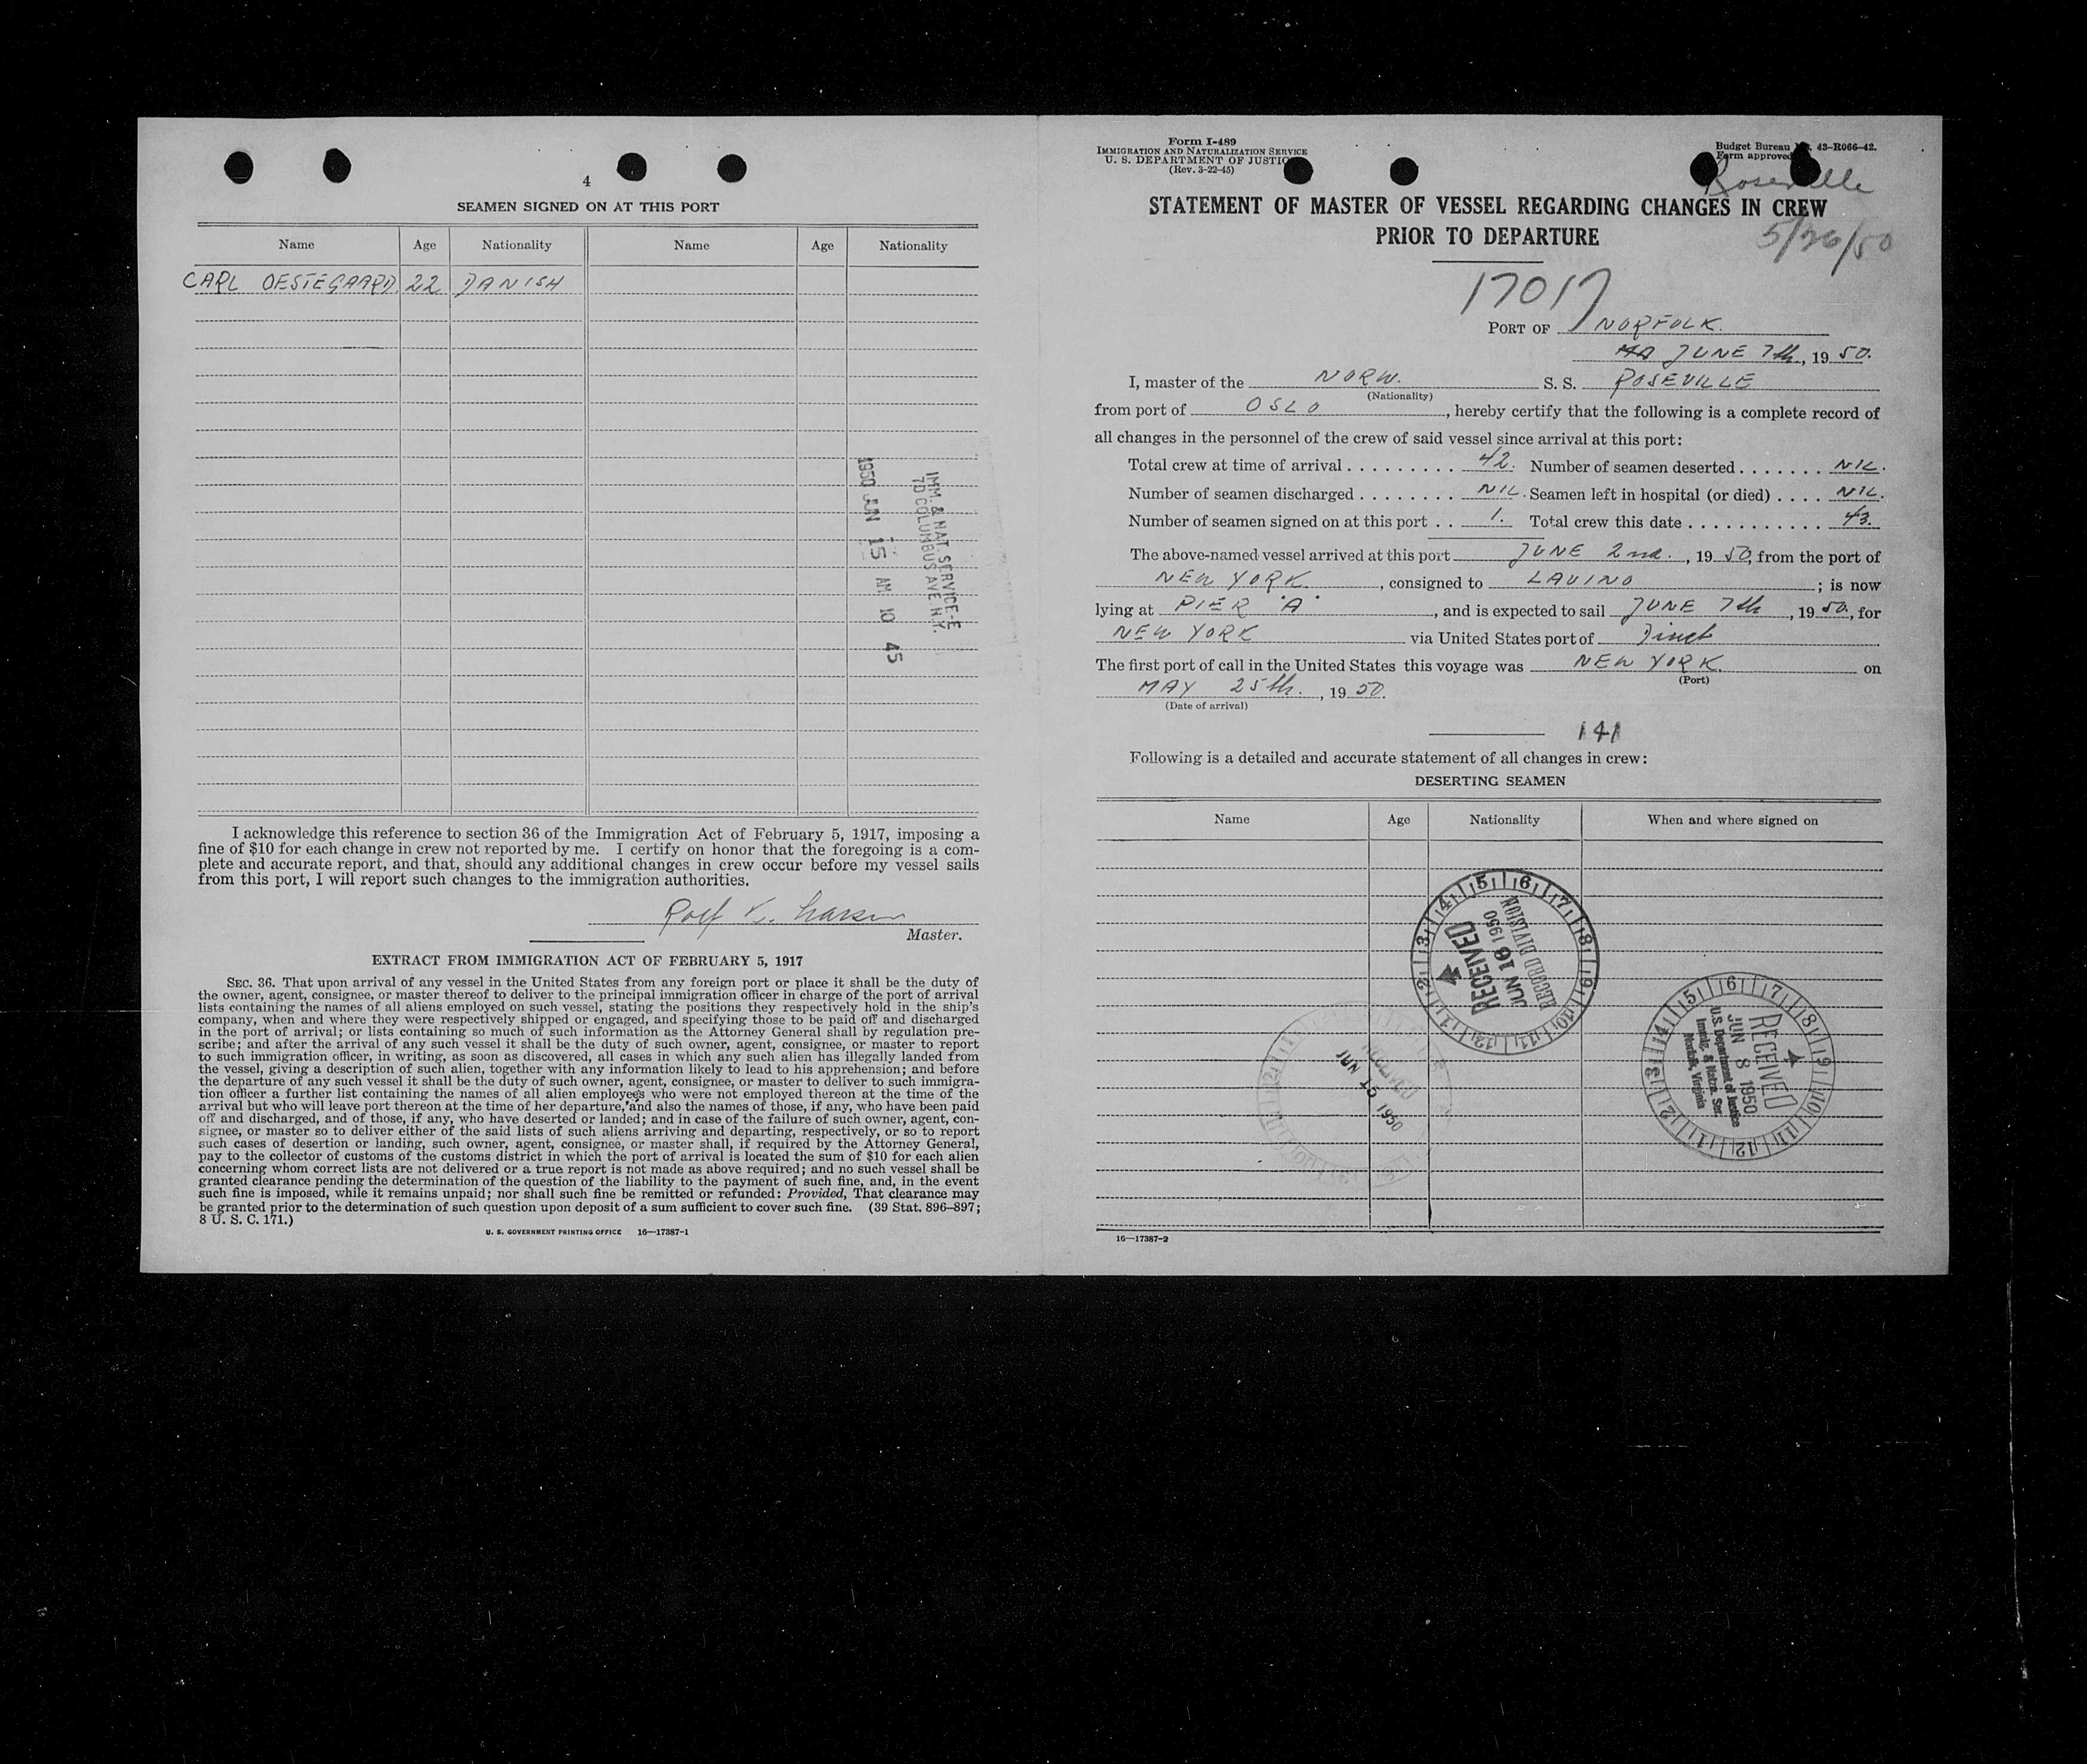 4
SEAMEN SIGNED ON AT THIS PORT
Name Age Nationality Name Age Nationality
CARL OESTEGAARD 22 DANISH
IMM. & NAT. SERVICE-E
70 COLUMBUS AVE N.Y.
1950 JUN 15 AM 10 45
I acknowledge this reference to section 36 of the Immigration Act of February 5, 1917, imposing a
fine of $10 for each change in crew not reported by me. I certify on honor that the foregoing is a com-
plete and accurate report, and that, should any additional changes in crew occur before my vessel sails
from this port, I will report such changes to the immigration authorities.
Rolf
Master.
EXTRACT FROM IMMIGRATION ACT OF FEBRUARY 5, 1917
SEC. 36. That upon arrival of any vessel in the United States from any foreign port or place it shall be the duty of
the owner, agent, consignee, or master thereof to deliver to the principal immigration officer in charge of the port of arrival
lists containing the names of all aliens employed on such vessel, stating the positions they respectively hold in the ship's
company, when and where they were respectively shipped or engaged, and specifying those to be paid off and discharged
in the port of arrival; or lists containing so much of such information as the Attorney General shall by regulation pre-
scribe; and after the arrival of any such vessel it shall be the duty of such owner, agent, consignee, or master to report
to such immigration officer, in writing, as soon as discovered, all cases in which any such alien has illegally landed from
the vessel, giving a description of such alien, together with any information likely to lead to his apprehension; and before
the departure of any such vessel it shall be the duty of such owner, agent, consignee, or master to deliver to such immigra-
tion officer a further list containing the names of all alien employees who were not employed thereon at the time of the
arrival but who will leave port thereon at the time of her departure, and also the names of those, if any, who have been paid
off and discharged, and of those, if any, who have deserted or landed; and in case of the failure of such owner, agent, con-
signee, or master so to deliver either of the said lists of such aliens arriving and departing, respectively, or so to report
such cases of desertion or landing, such owner, agent, consignee, or master shall, if required by the Attorney General,
pay to the collector of customs of the customs district in which the port of arrival is located the sum of $10 for each alien
concerning whom correct lists are not delivered or a true report is not made as above required; and no such vessel shall be
granted clearance pending the determination of the question of the liability to the payment of such fine, and, in the event
such fine is imposed, while it remains unpaid; nor shall such fine be remitted or refunded: Provided, That clearance may
be granted prior to the determination of such question upon deposit of a sum sufficient to cover such fine. (39 Stat. 896-897;
8 U. S. C. 171.)
U. S. GOVERNMENT PRINTING OFFICE 16—17387-1
Form I-489
IMMIGRATION AND NATURALIZATION SERVICE
U. S. DEPARTMENT OF JUSTICE
(Rev. 3-22-45)
Budget Bureau 43-R066-42.
Form approved
Roseville
5/26/50
STATEMENT OF MASTER OF VESSEL REGARDING CHANGES IN CREW
PRIOR TO DEPARTURE
17017
PORT OF NORFOLK.
JUNE 7th, 19 50.
I, master of the NORW. S. S. ROSEVILLE
(Nationality)
from port of OSLO, hereby certify that the following is a complete record of
all changes in the personnel of the crew of said vessel since arrival at this port:
Total crew at time of arrival . . . . . . . . . 42. Number of seamen deserted . . . . . . . NIL.
Number of seamen discharged . . . . . . . . NIL. Seamen left in hospital (or died) . . . . NIL.
Number of seamen signed on at this port . . 1. Total crew this date . . . . . . . . . . . 43.
The above-named vessel arrived at this port JUNE 2nd., 19 50, from the port of
NEW YORK, consigned to LAVINO; is now
lying at PIER "A", and is expected to sail JUNE 7th, 19 50, for
NEW YORK via United States port of Direct
The first port of call in the United States this voyage was NEW YORK. on
(Port)
MAY 25th., 19 50.
(Date of arrival)
141
Following is a detailed and accurate statement of all changes in crew:
DESERTING SEAMEN
Name Age Nationality When and where signed on
RECEIVED
JUN 16 1950
RECORD DIVISION
JUN 15 1950
RECEIVED
JUN 8 1950
U.S. Department of Justice
Immig. & Natzn. Ser.
Norfolk, Virginia
16—17387-2